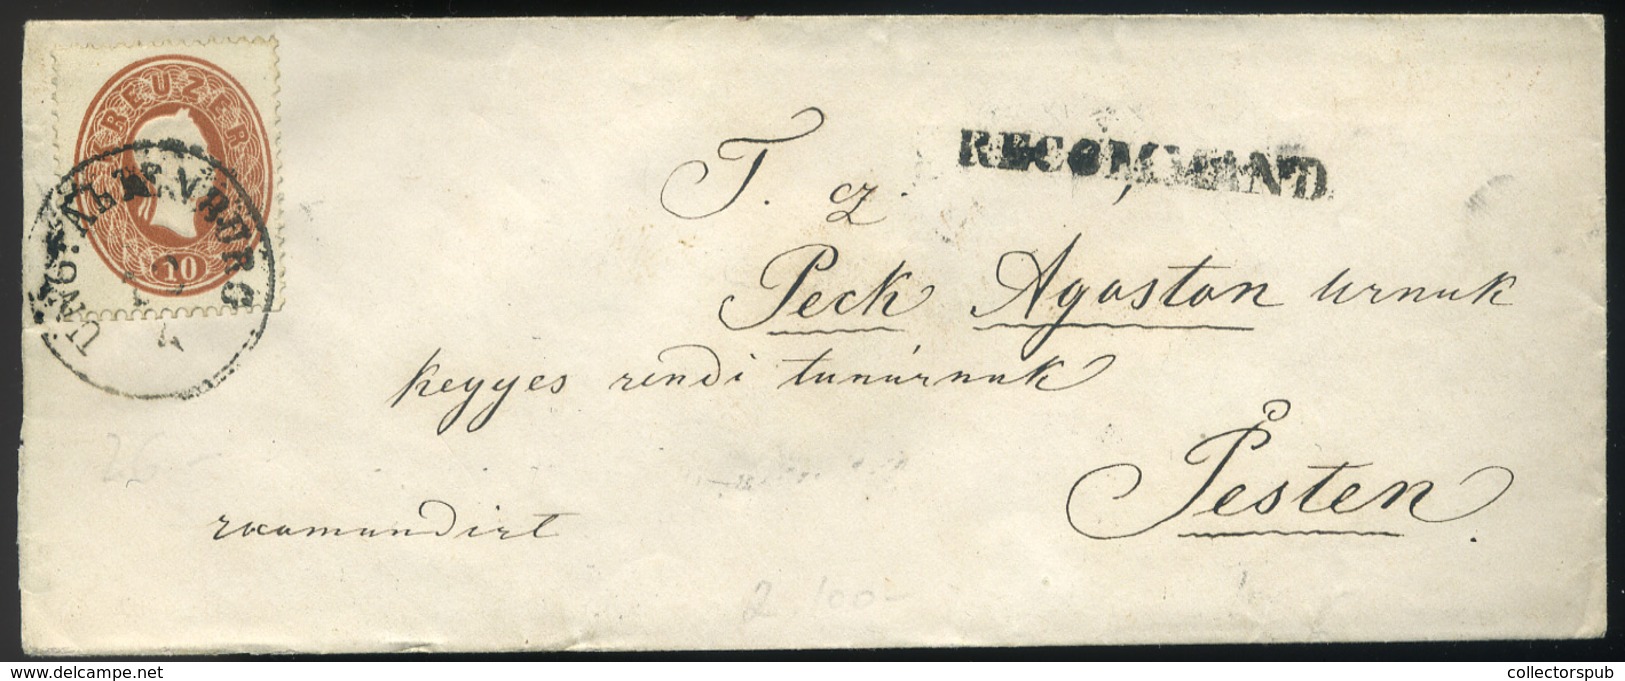 KREUZER
10
UNG: ALTENBURG
RECOMMAND
T. cz.
Peck Agoston Urnak
kegyes rendi tanárnak
Pesten.
recomandirt
26-
2 100-
collectorspub